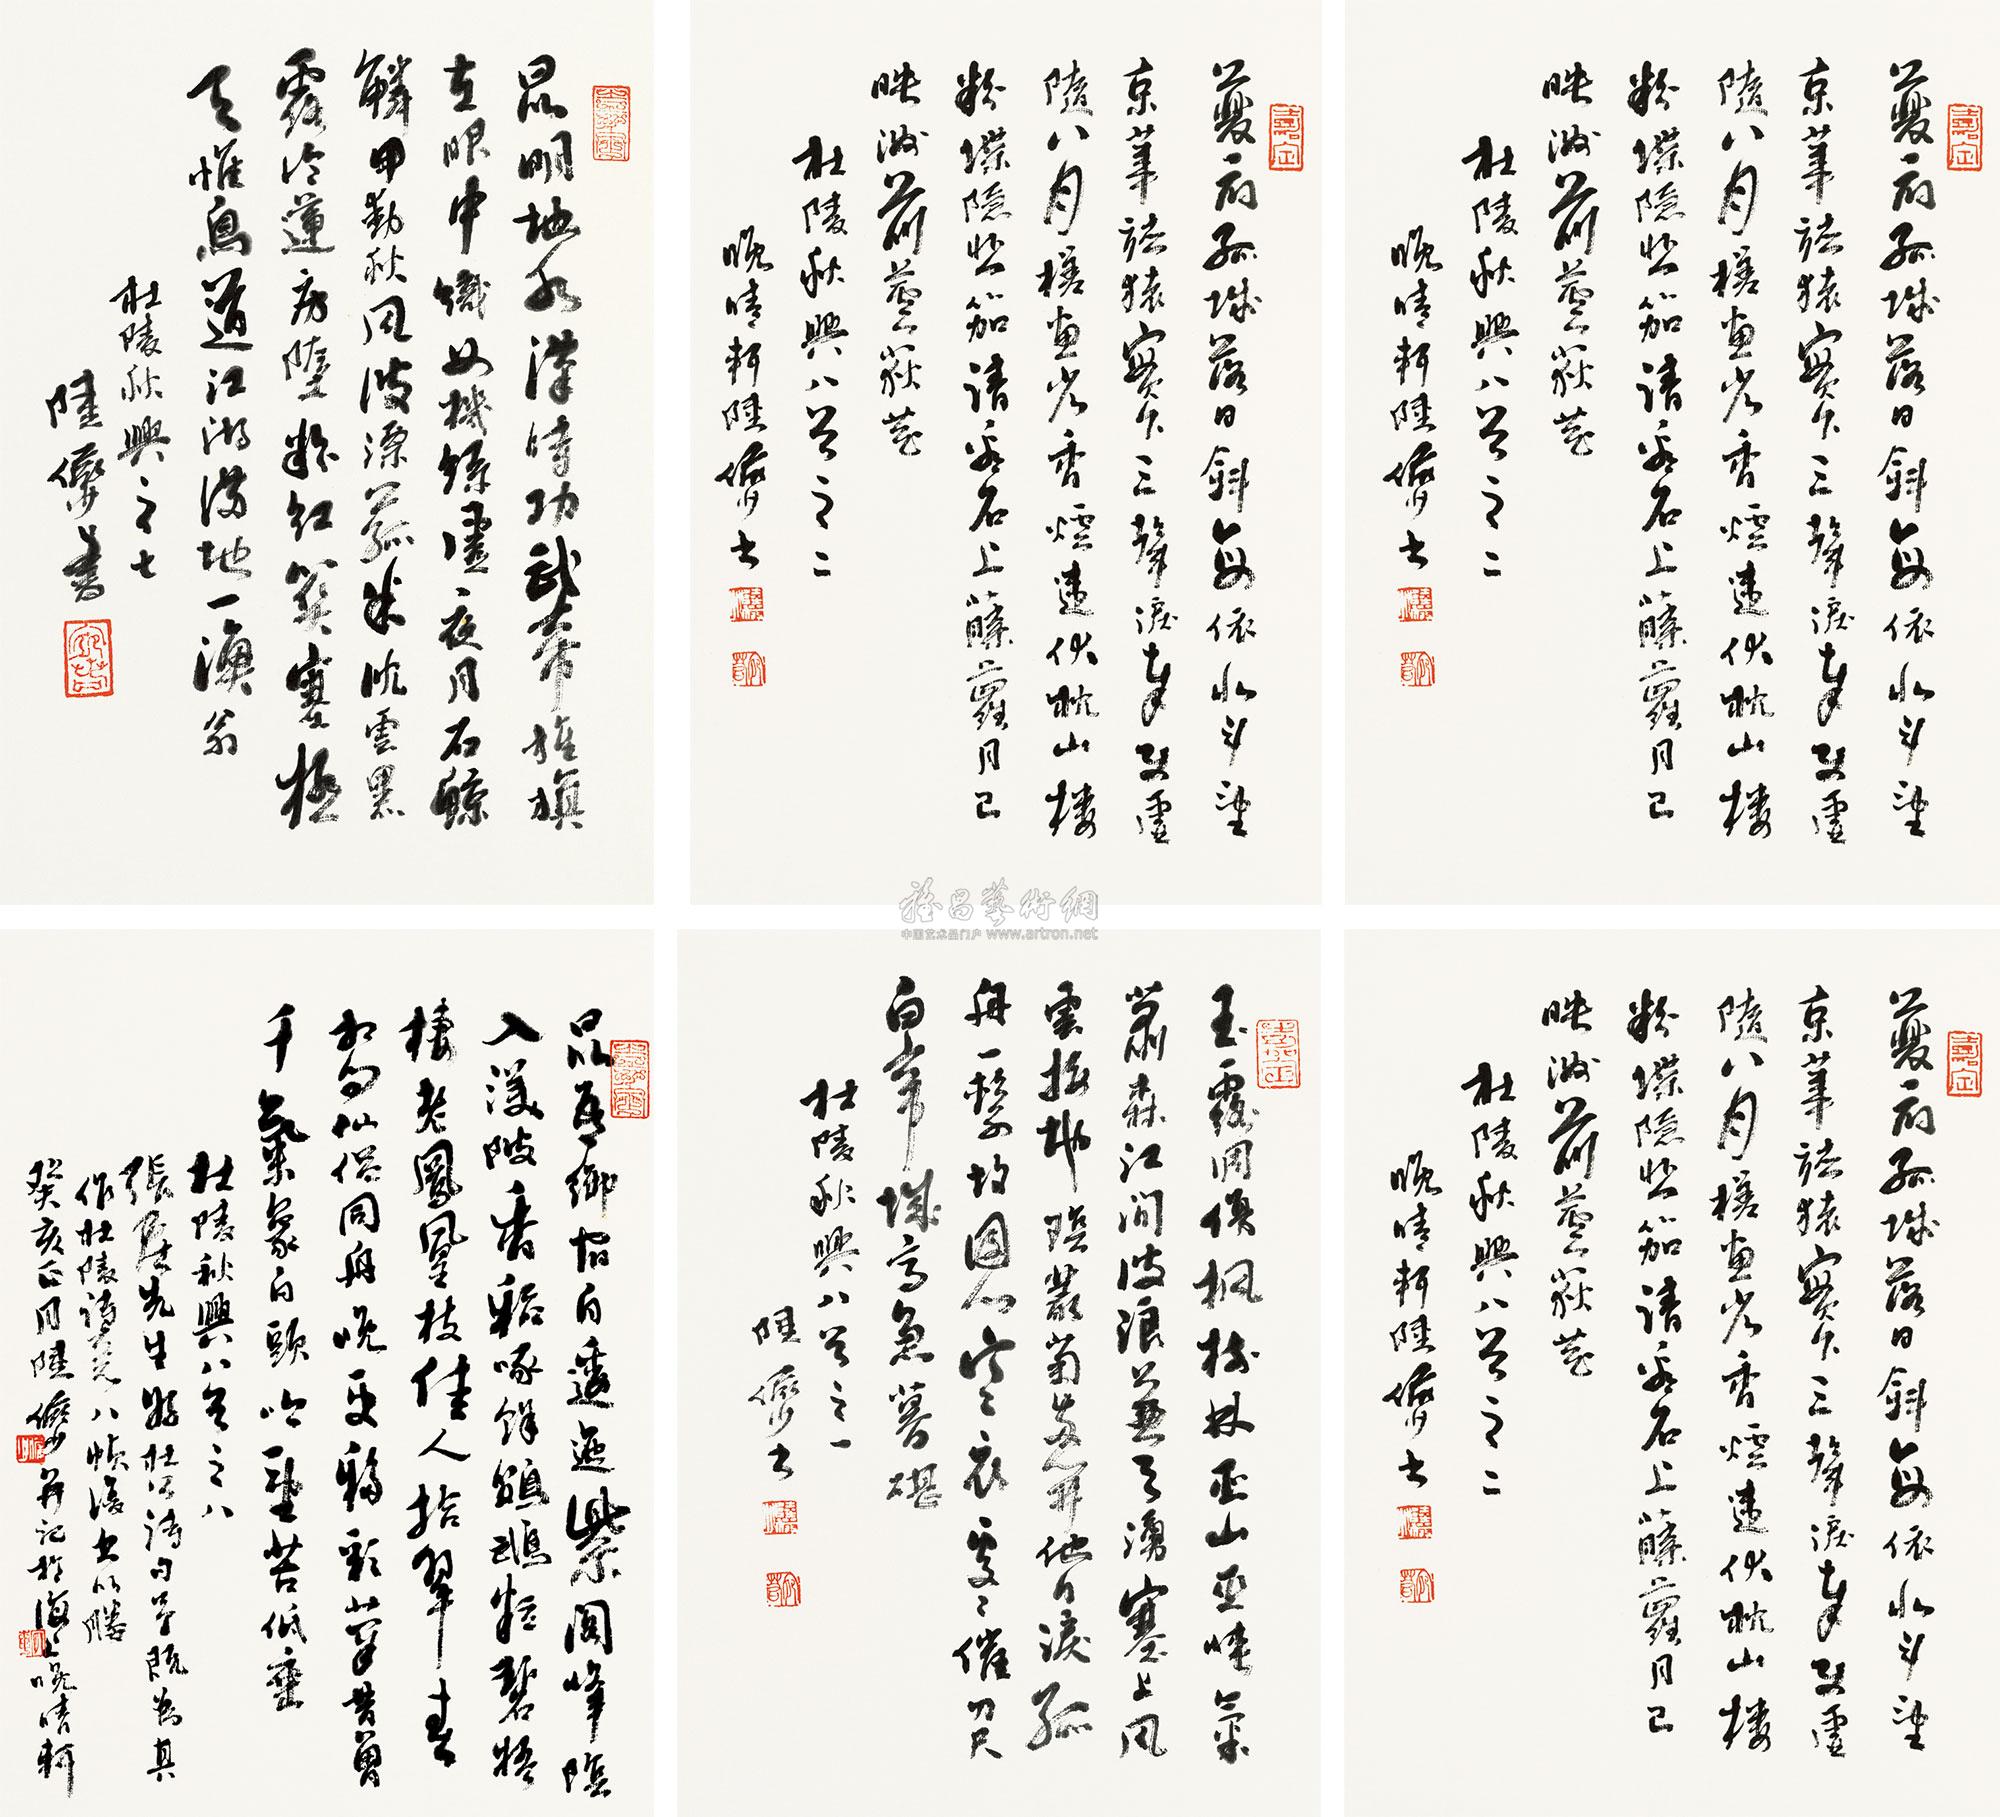 昆明池水漢時功武帝旌旗
在眼中織女機絲虛夜月石鯨
鱗甲動秋風波漂菰米沈雲黑
露冷蓮房墜粉紅關塞極
天惟鳥道江湖滿地一漁翁
杜陵秋興之七
陸儼少書
夔府孤城落日斜每依北斗望
京華聽猿實下三聲淚奉使虛
隨八月槎畫省香爐違伏枕山樓
粉堞隱悲笳請看石上藤蘿月已
映洲前蘆荻花
杜陵秋興八首之二
晚晴軒陸儼少書
夔府孤城落日斜每依北斗望
京華聽猿實下三聲淚奉使虛
隨八月槎畫省香爐違伏枕山樓
粉堞隱悲笳請看石上藤蘿月已
映洲前蘆荻花
杜陵秋興八首之二
晚晴軒陸儼少書
雅昌藝術網
中国艺术品门户 www.artron.net
昆吾御宿自逶迤紫閣峰陰
入渼陂香稻啄餘鸚鵡粒碧梧
棲老鳳凰枝佳人拾翠春
相問仙侶同舟晚更移彩筆昔曾
干氣象白頭吟望苦低垂
杜陵秋興八首之八
張先生好杜詩句予既為其
作杜陵詩意八幀復書以媵
癸亥正月陸儼少並記於海上晚晴軒
玉露凋傷楓樹林巫山巫峽氣
蕭森江間波浪兼天湧塞上風
雲接地陰叢菊兩開他日淚孤
舟一繫故園心寒衣處處催刀尺
白帝城高急暮碪
杜陵秋興八首之一
陸儼少書
夔府孤城落日斜每依北斗望
京華聽猿實下三聲淚奉使虛
隨八月槎畫省香爐違伏枕山樓
粉堞隱悲笳請看石上藤蘿月已
映洲前蘆荻花
杜陵秋興八首之二
晚晴軒陸儼少書